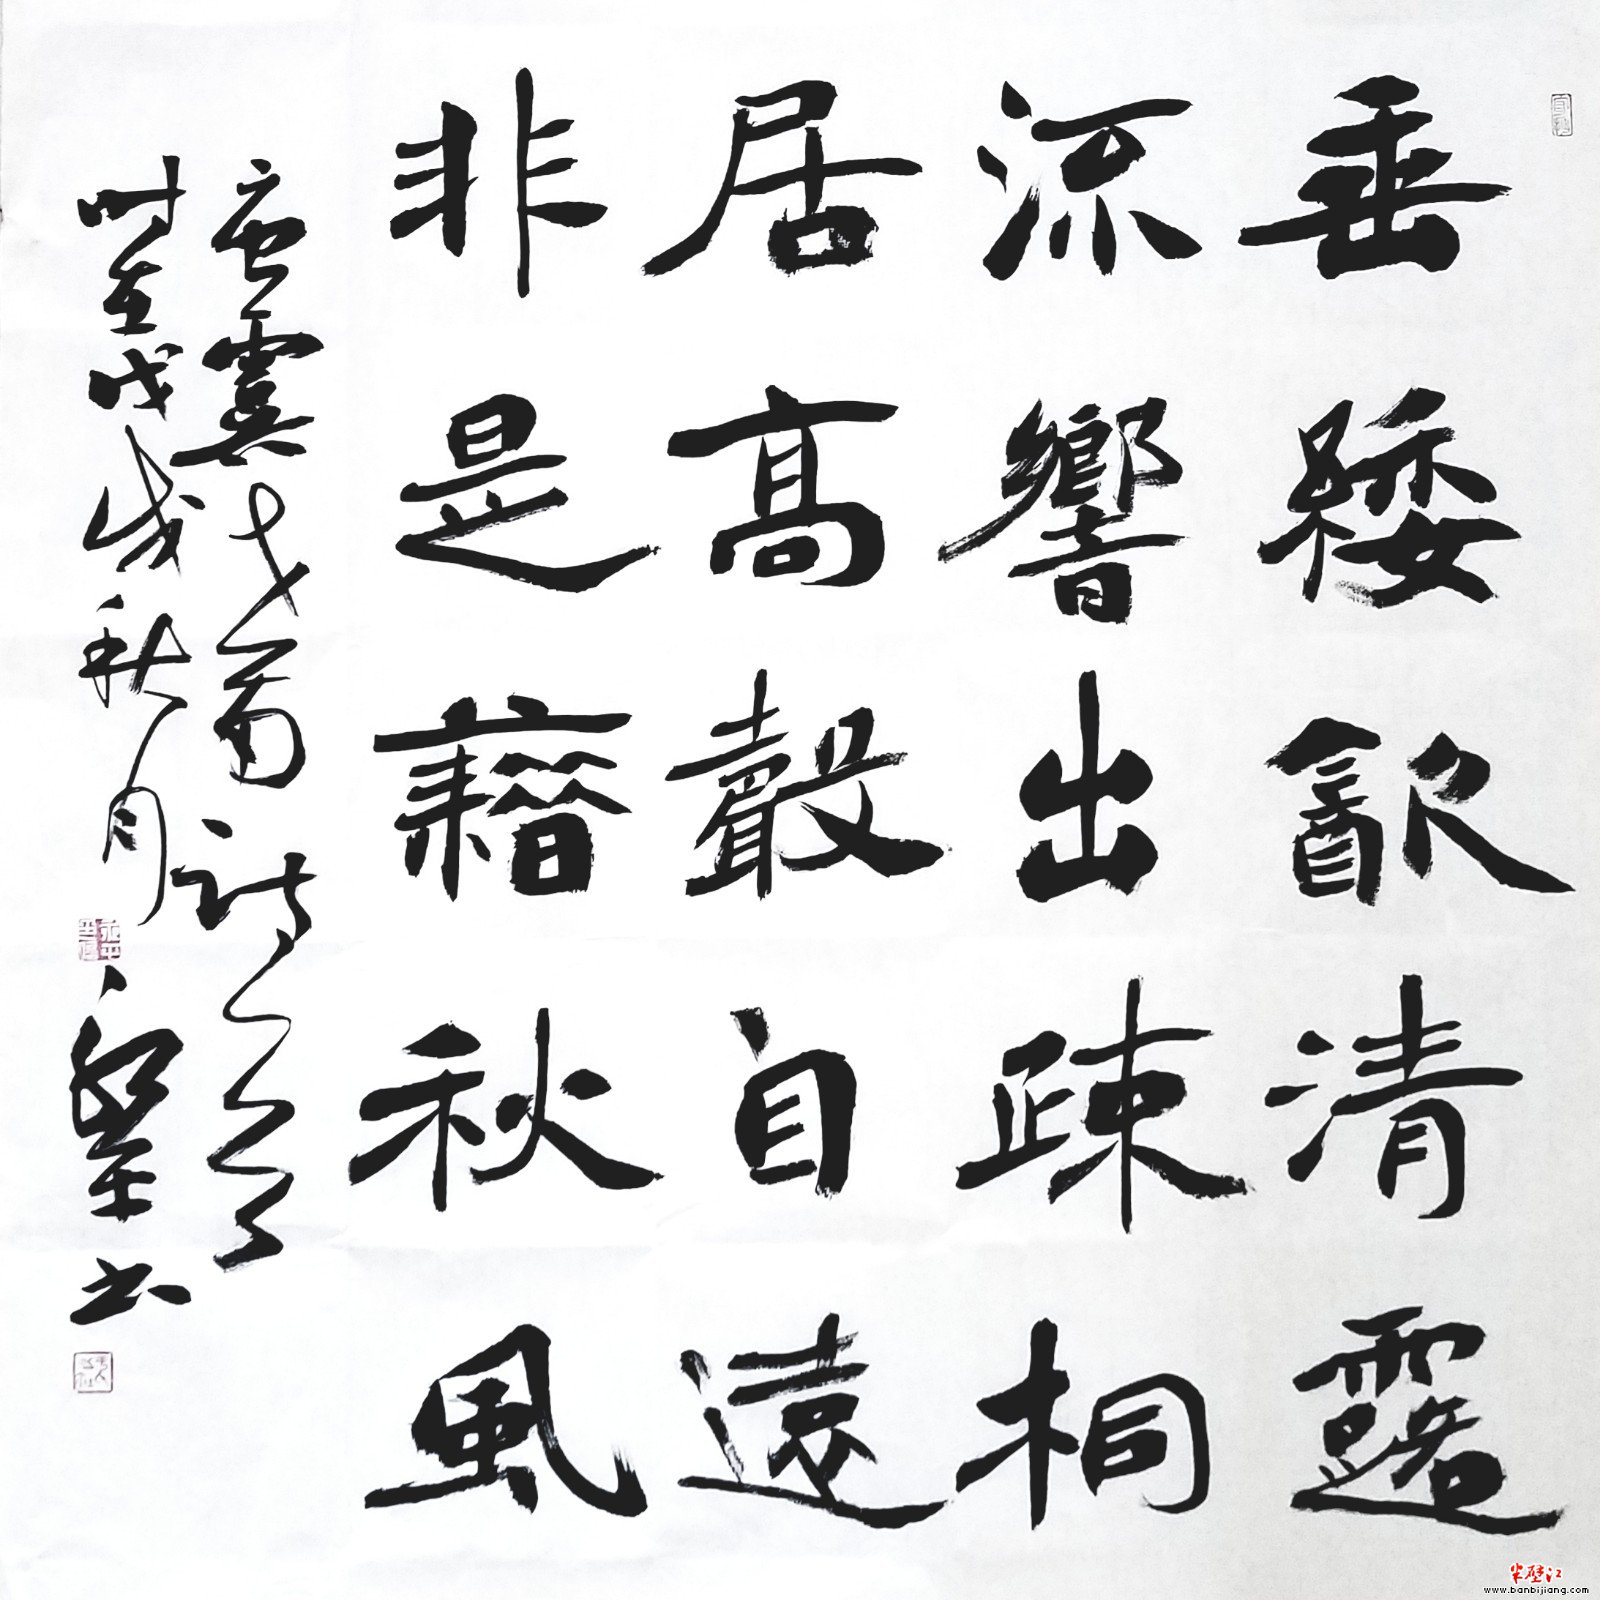 垂緌㱃清露
流響出疎桐
居高聲自遠
非是藉秋風
唐虞世南詩
时在戊戌秋月 书
半壁江
www.banbijiang.com